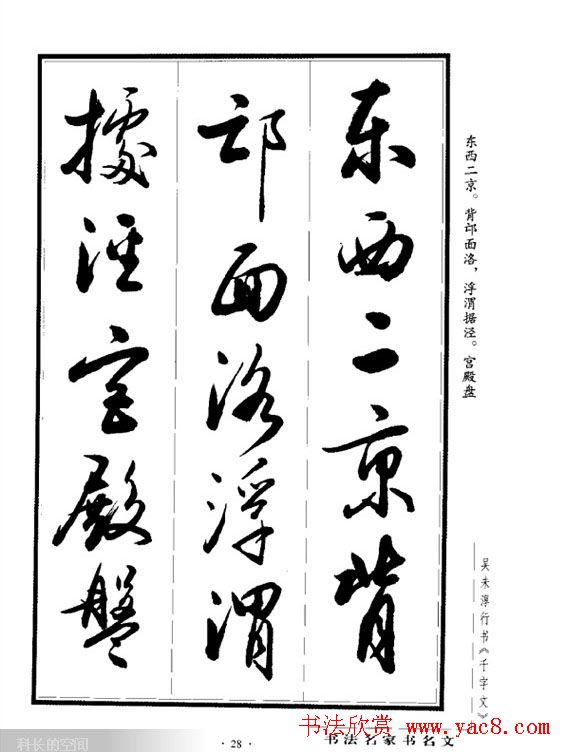 东西二京背
邙面洛浮渭
據泾宫殿盤
东西二京。背邙面洛，浮渭据泾。宫殿盘
吴未淳行书《千字文》
书法欣赏 www.yac8.com
书法名家书名文
· 28 ·
科长的空间